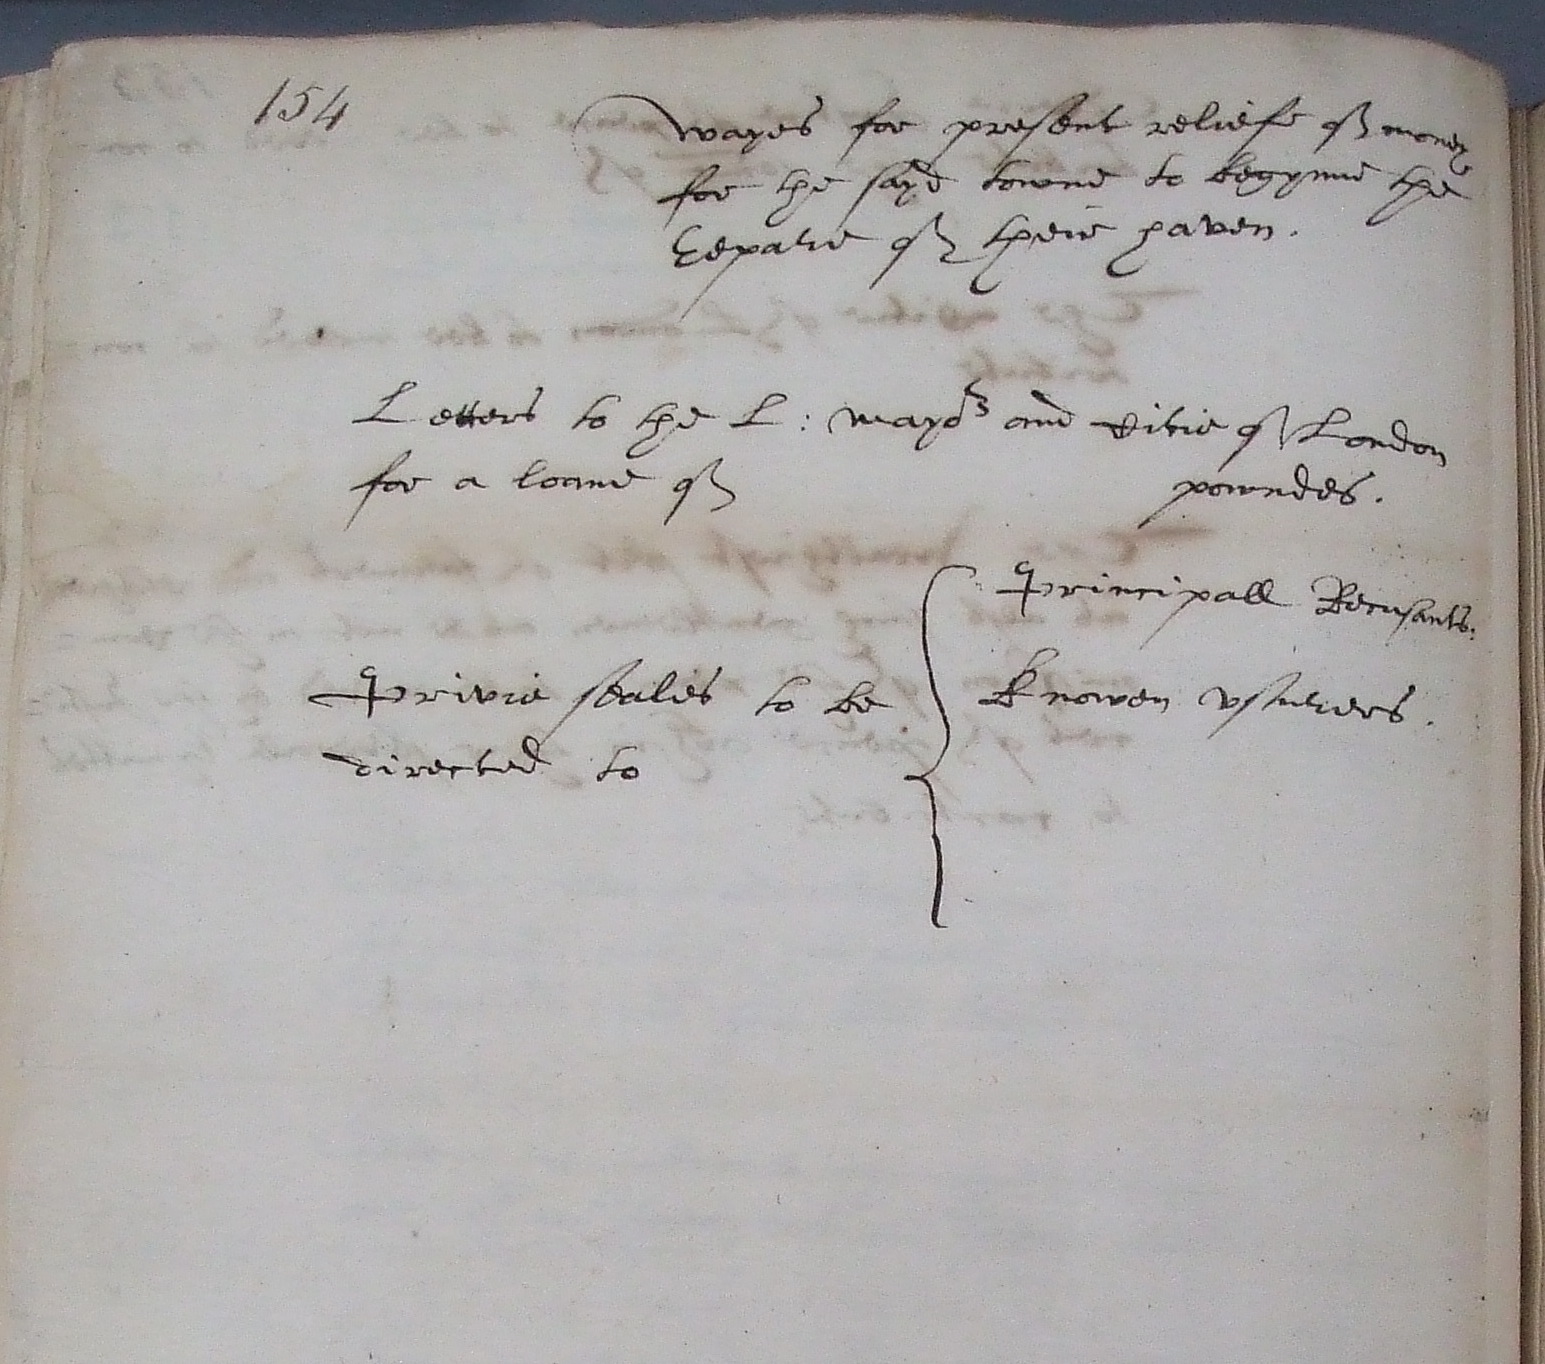 154
wayes for present reliefe of money
for the sayd towne to begynne the
Repaire of their haven.
Letters to the L: mayor and Citie of London
for a loane of powndes.
Principall Recusants.
Privie seales to be Knowen vsurers.
directed to